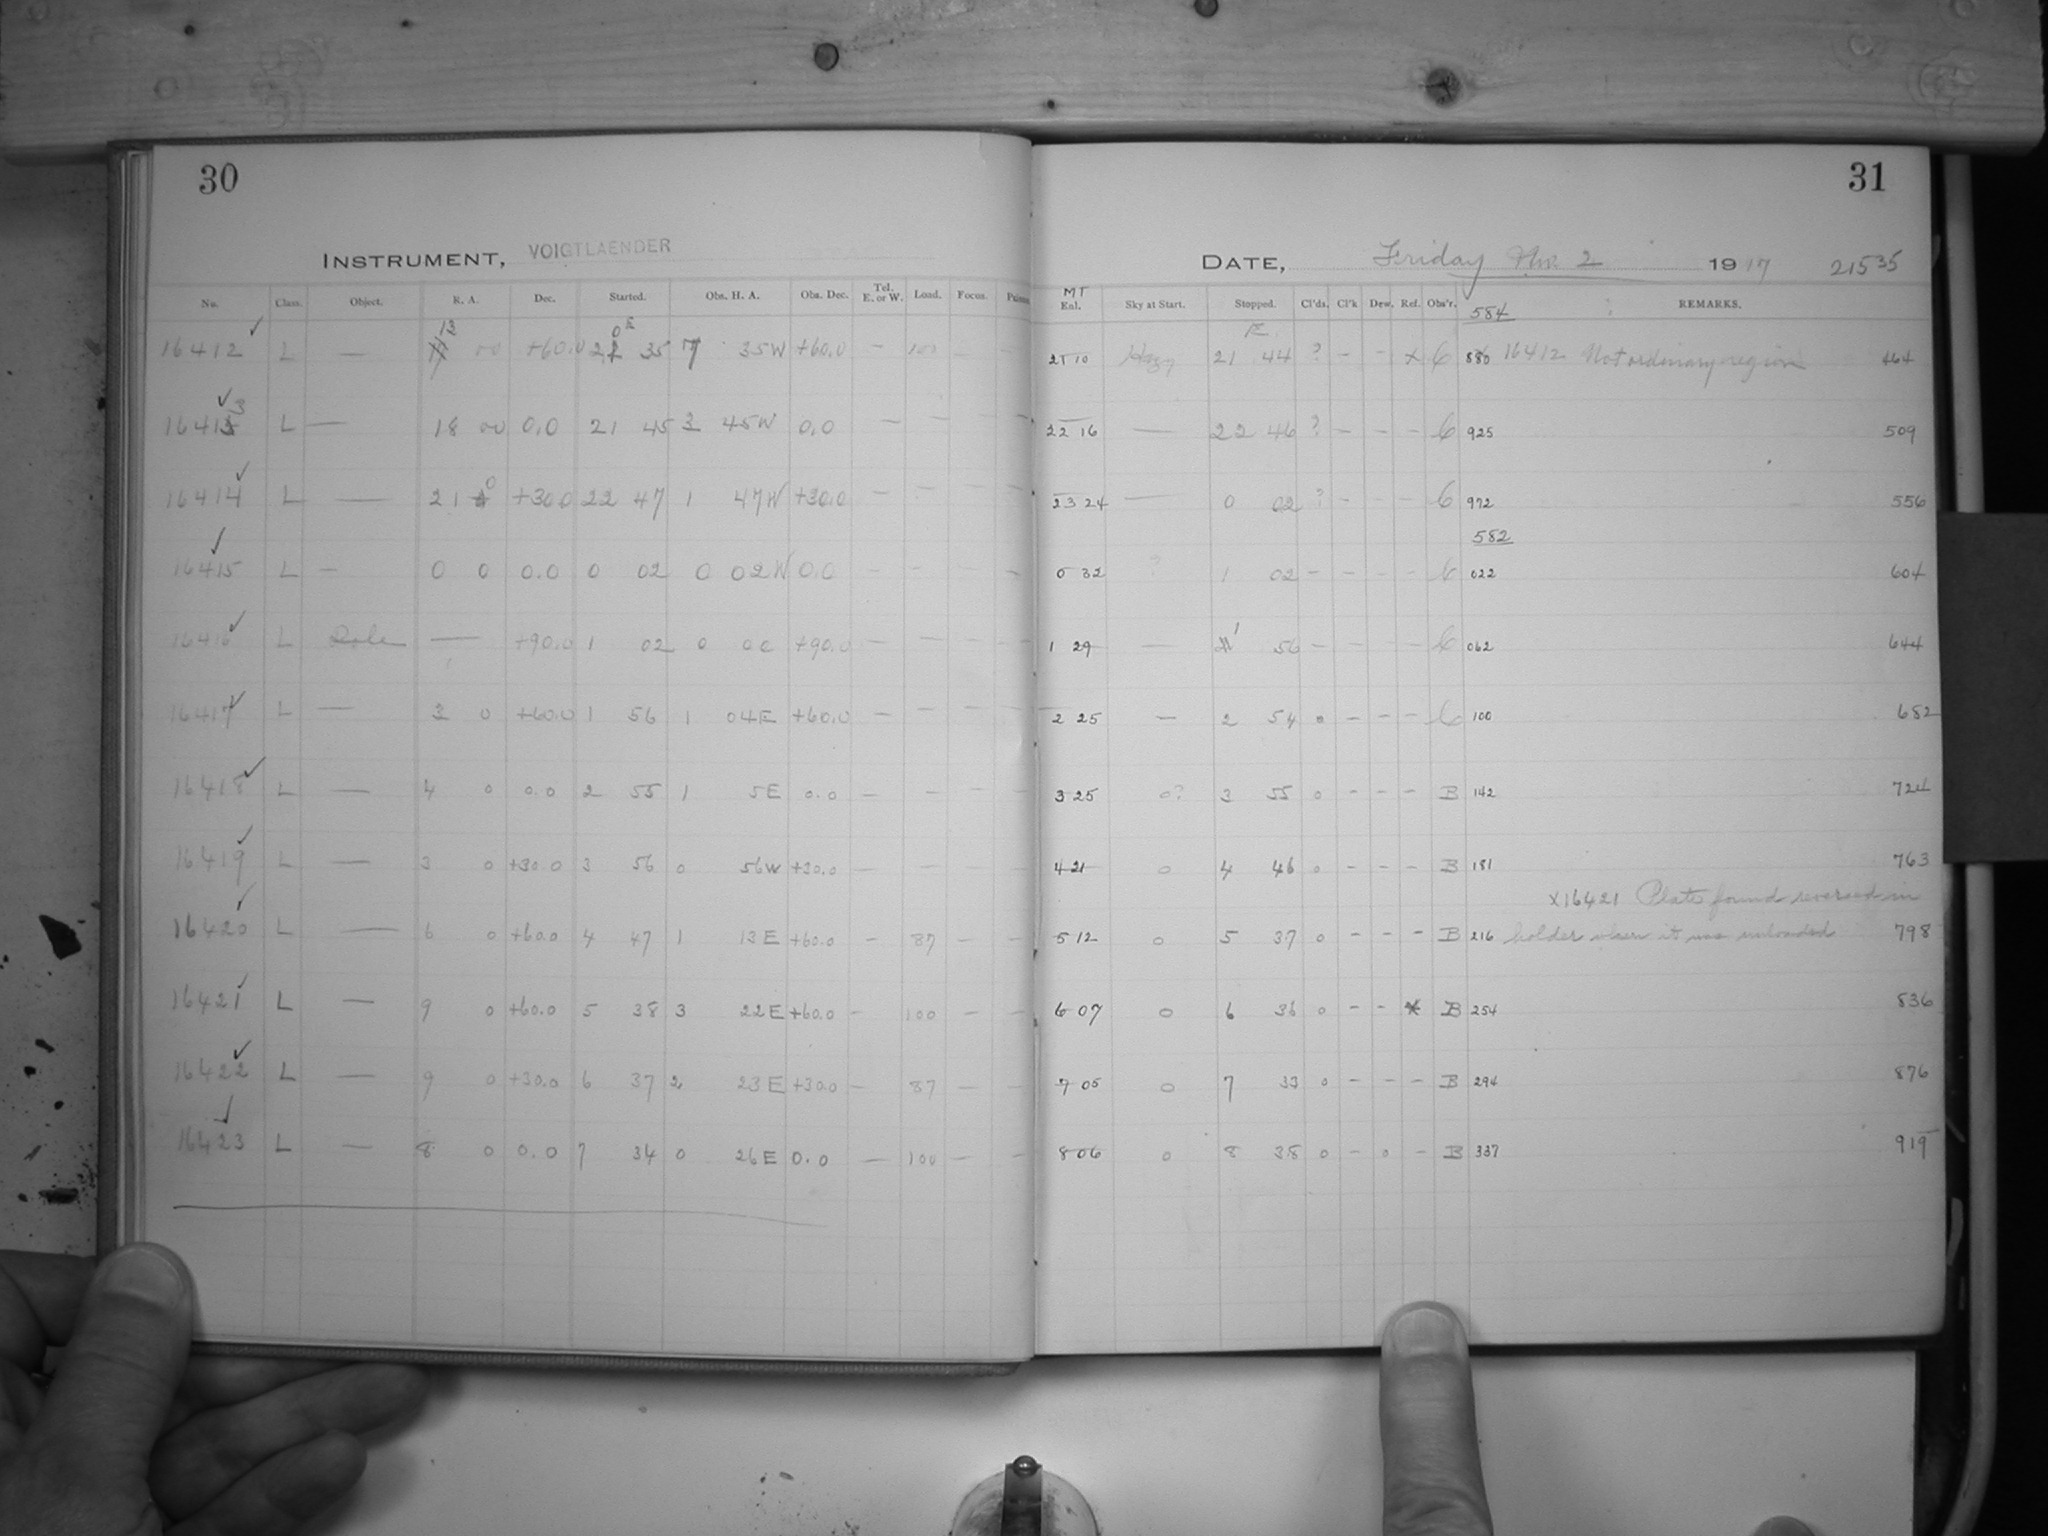 30
INSTRUMENT, VOIGTLAENDER
No. Class. Object. R. A. Dec. Started. Obs. H. A. Obs. Dec. Tel. E. or W. Load. Focus.
16412 L — 13 00 +60.0 35 7 35W +60.0 — 100 —
16413 L — 18 00 0.0 21 45 3 45W 0.0 — — — —
16414 L — 21 0 +30.0 22 47 1 47W +30.0 — — — —
16415 L — 0 0 0.0 0 02 0 02W 0.0 — — — —
16416 L Pole — +90.0 1 02 0 00 +90.0 — — — —
16417 L — 3 0 +60.0 1 56 1 04E +60.0 — — — —
16418 L — 4 0 0.0 2 55 1 5E 0.0 — — — —
16419 L — 3 0 +30.0 3 56 0 56W +30.0 — — — —
16420 L — 6 0 +60.0 4 47 1 13E +60.0 — 87 — —
16421 L — 9 0 +60.0 5 38 3 22E +60.0 — 100 — —
16422 L — 9 0 +30.0 6 37 2 23E +30.0 — 87 — —
16423 L — 8 0 0.0 7 34 0 26E 0.0 — 100 — —
31
DATE, Friday Nov. 2 1917 21535
MT
Enl. Sky at Start. Stopped. Cl'ds. Cl'k Dew. Ref. Obs'r. REMARKS.
584
21 10 Hazy 21 44 ? — — x 6 880 16412 Not ordinary region 464
22 16 — 22 46 ? — — — 6 925 509
23 24 — 0 02 ? — — — 6 972 556
582
0 32 ? 1 02 — — — — 6 022 604
1 29 — 1 56 — — — — 6 062 644
2 25 — 2 54 0 — — — 6 100 682
3 25 0? 3 55 0 — — — B 142 724
4 21 0 4 46 0 — — — B 181 763
x16421 Plate found reversed in
5 12 0 5 37 0 — — — B 216 holder when it was unloaded 798
6 07 0 6 36 0 — — x B 254 836
7 05 0 7 33 0 — — — B 294 876
8 06 0 8 38 0 — 0 — B 337 919